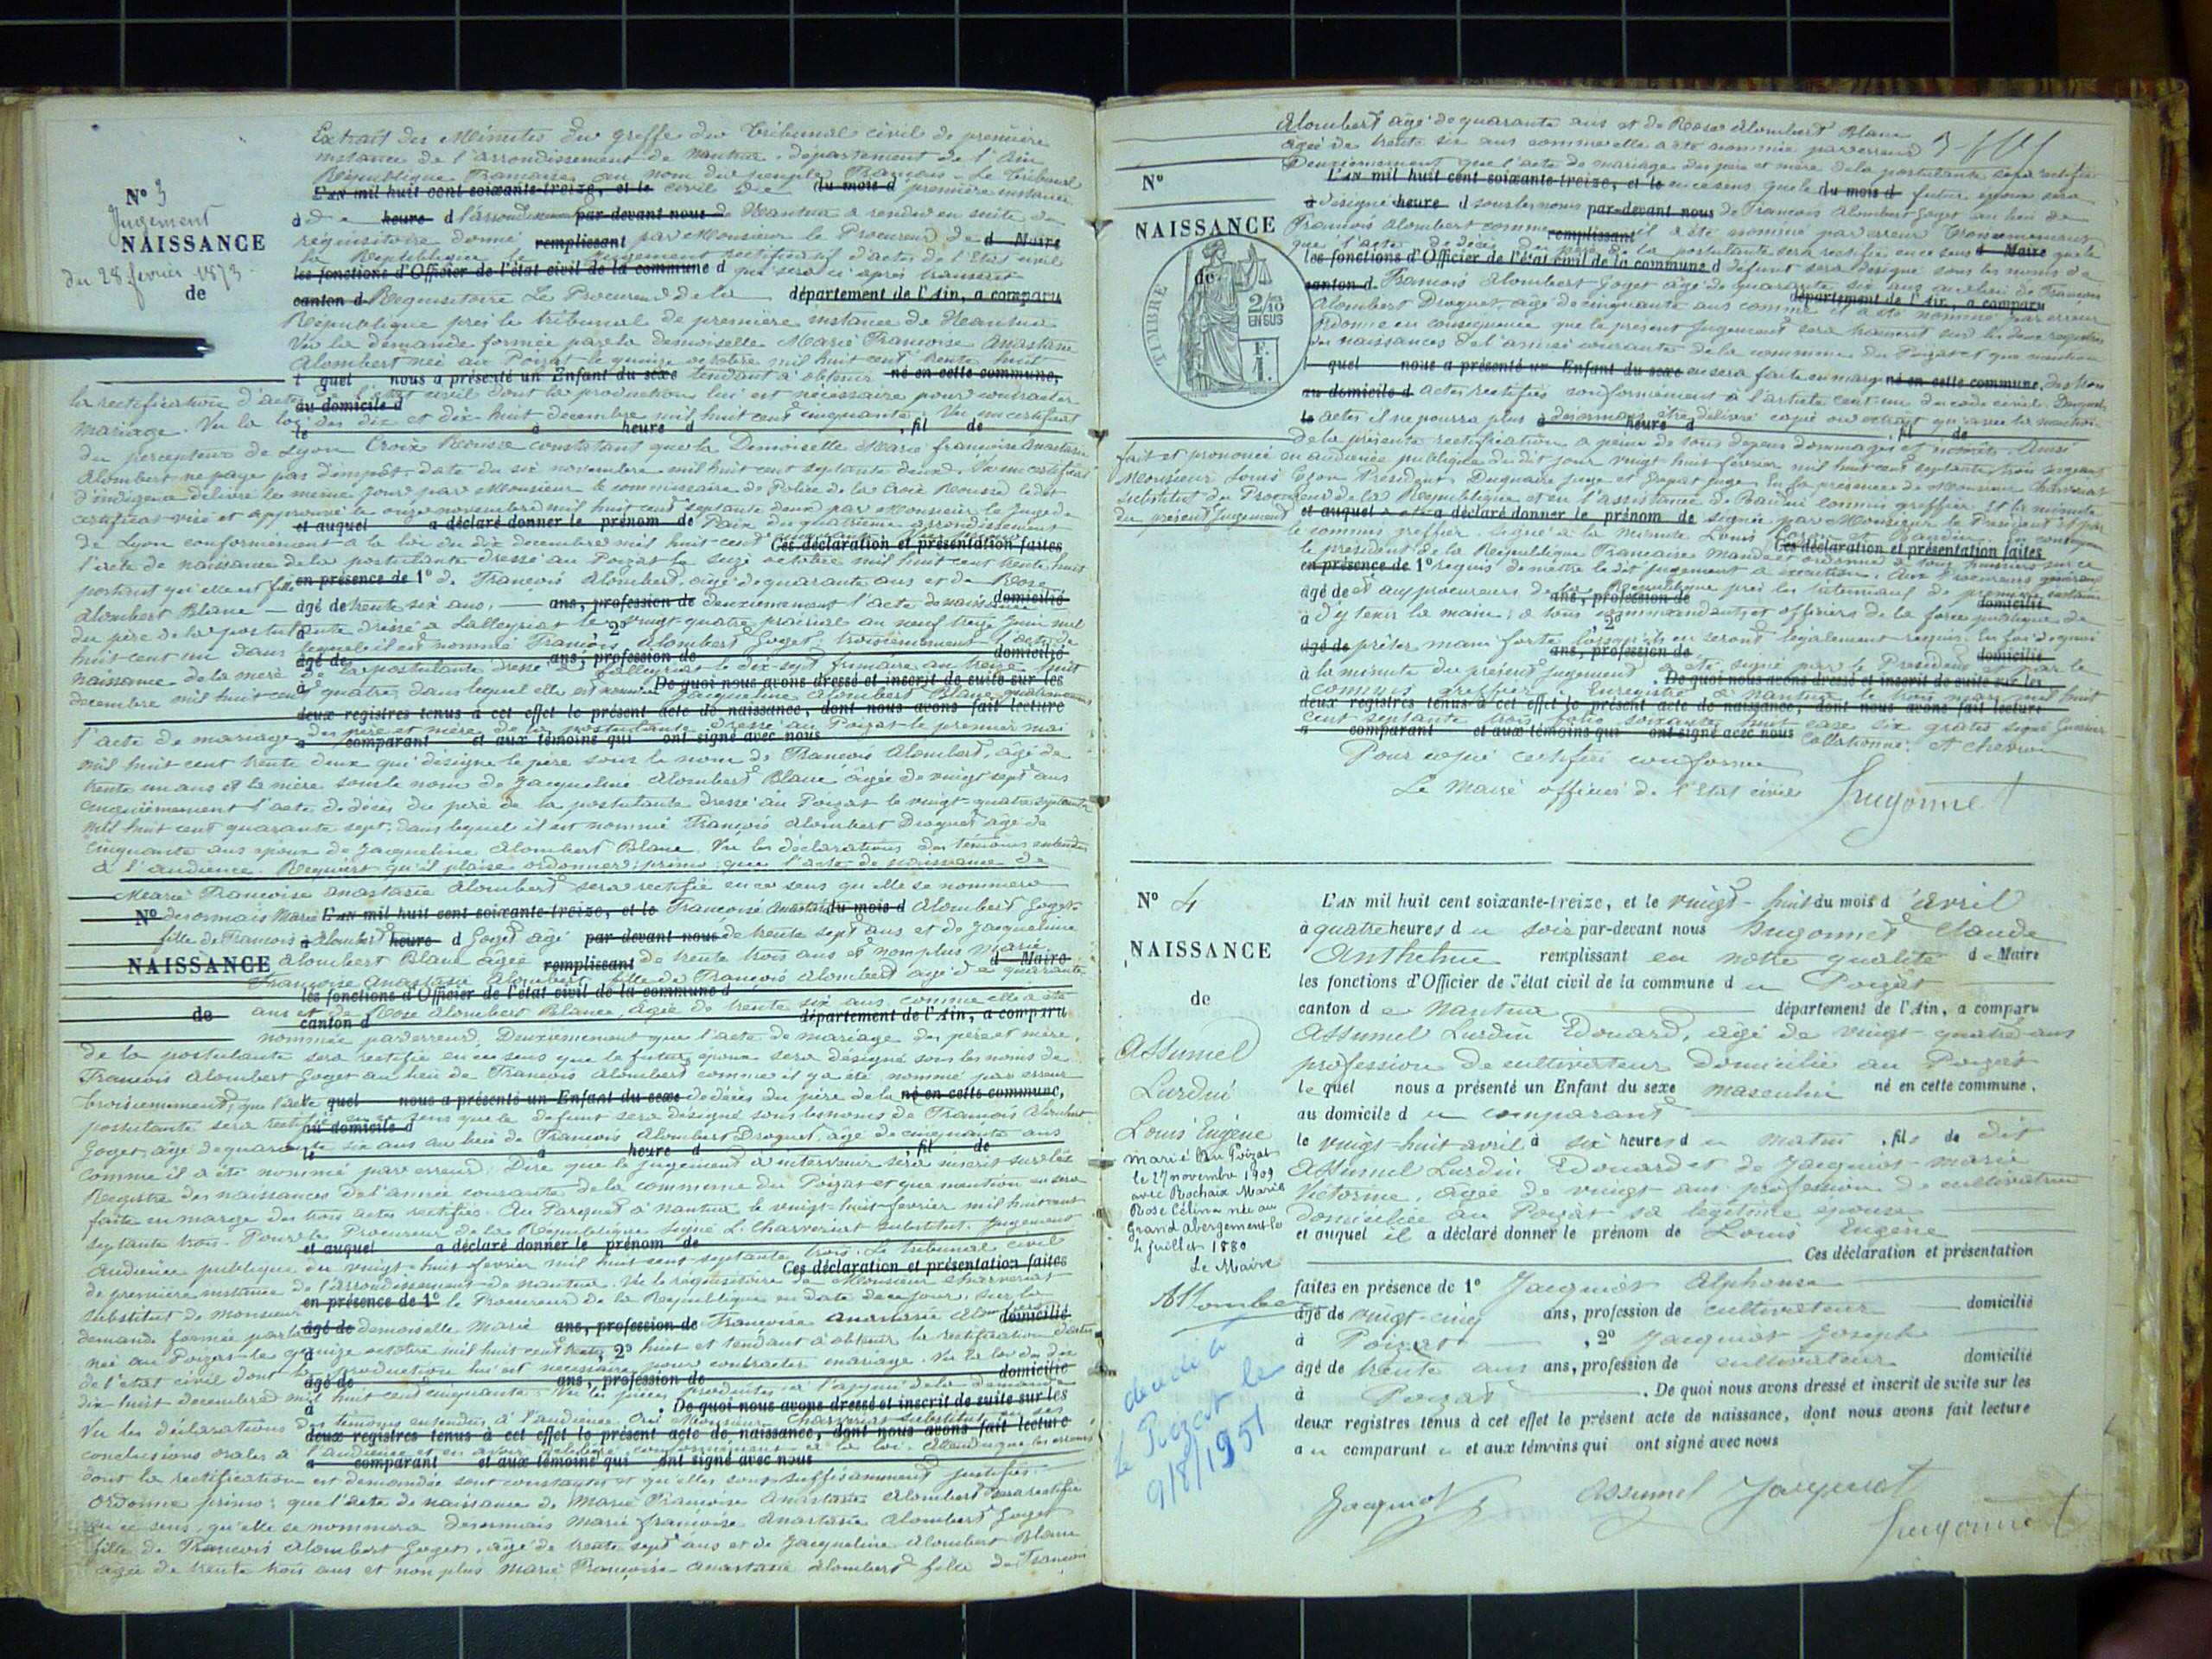 Nº 3
Jugement
NAISSANCE
du 28 fevrier 1873
de
Extrait des Minutes du greffe du Tribunal civil de première
instance de l'arrondissement de Nantua, département de l'Ain
République Française au nom du peuple Français. Le Tribunal
L'AN mil huit cent soixante-treize, et le civil de du mois d première instance
d de heure d l'arrondissement par devant nous de Nantua a rendu en suite du
réquisitoire donné remplissant par Monsieur le Procureur de d Maire
la République le jugement rectificatif d'actes de l'Etat civil
les fonctions d'Officier de l'état civil de la commune d qui sera ci après transcrit
canton d Requisitoire Le Procureur de la département de l'Ain, a comparu
République près le tribunal de première instance de Nantua
Vu la demande formée par la demoiselle Marie Françoise Anastasie
Alombert née au Poizat le quinze octobre mil huit cent trente huit
l quel nous a présenté un Enfant du sexe tendant à obtenir né en cette commune,
la rectification d'actes de l'état civil dont la production lui est nécessaire pour contracter
au domicile d
mariage. Vu la loi des dix et dix-huit decembre mil huit cent cinquante. Vu un certificat
le à heure d , fil de
du percepteur de Lyon Croix Rousse constatant que la Demoiselle Marie françoise Anastasie
Alombert ne paye pas d'impôt, date du six novembre mil huit cent septante deux. Vu un certificat
d'indigence délivré le meme jour par Monsieur le commissaire de Police de la Croix Rousse ledit
certificat visé et approuvé le onze novembre mil huit cent septante deux par Monsieur le Juge de
et auquel a déclaré donner le prénom de Paix du quatrième arrondissement
de Lyon conformément à la loi du dix decembre mil huit cent cinquante
Ces déclaration et présentation faites
l'acte de naissance de la postulante dressé au Poizat le seize octobre mil huit cent trente huit
portant qu'elle est fille en présence de 1º de François Alombert, âgé de quarante ans et de Rose
Alombert Blanc — âgé de trente six ans, — ans, profession de deuxièmement l'acte de naissance domicilié
du père de la postulante dressé à Lalleyriat le vingt quatre prairial an neuf treize Juin mil
à , 2º
huit cent un dans lequel il est nommé François Alombert Goget, troisièmement l'acte de
âgé de ans, profession de domicilié
naissance de la mère de la postulante dressé à Lalleyriat le dix-sept frimaire an treize huit
decembre mil huit cent quatre, dans lequel elle est nommée Jacqueline Alombert Blanc quatrièmement
De quoi nous avons dressé et inscrit de suite sur les
deux registres tenus à cet effet le présent acte de naissance, dont nous avons fait lecture
l'acte de mariage des père et mère de la postulante dressé au Poizat le premier mai
a comparant et aux témoins qui ont signé avec nous
mil huit cent trente deux qui désigne le père sous le nom de François Alombert, âgé de
trente un ans et la mère sous le nom de Jacqueline Alombert Blanc âgée de vingt sept ans
cinquièmement l'acte de décès du père de la postulante dressé au Poizat le vingt-quatre septembre
mil huit cent quarante sept, dans lequel il est nommé François Alombert Droguet âgé de
cinquante ans époux de Jacqueline Alombert Blanc. Vu les déclarations des témoins entendus
à l'audience. Requiert qu'il plaise ordonner; primo: que l'acte de naissance de
Marie Françoise Anastasie Alombert sera rectifié en ce sens qu'elle se nommera
Nº desormais Marie L'AN mil huit cent soixante-treize, et le Françoise Anastasie du mois d Alombert Goget
fille de François à Alombert heure d Goget âgé par devant nous de trente sept ans et de Jacqueline
NAISSANCE Alombert Blanc âgée remplissant de trente trois ans et non plus Marie d Maire
Françoise Anastasie Alombert, fille de François Alombert âgé de quarante
les fonctions d'Officier de l'état civil de la commune d
de ans et de Rose Alombert Blanc, âgée de trente six ans comme elle a été
canton d département de l'Ain, a comparu
nommée par erreur. Deuxièmement que l'acte de mariage des père et mère
de la postulante sera rectifié en ce sens que le futur époux sera désigné sous les noms de
François Alombert Goget au lieu de François Alombert comme il y a été nommé par erreur
troisièmement, que l'acte quel nous a présenté un Enfant du sexe de décès du père de la né en cette commune,
postulante sera rectifié en ce sens que le defunt sera désigné sous les noms de François Alombert
au domicile d
Goget, âgé de quarante six ans au lieu de François Alombert Droguet, âgé de cinquante ans
le à heure d , fil de
comme il a été nommé par erreur. Dire que le jugement à intervenir sera inscrit sur les
Registre des naissances de l'année courante de la commune du Poizat et que mention en sera
faite en marge des trois actes rectifiés. Au Parquet à Nantua le vingt-huit fevrier mil huit cent
septante trois. Pour le Procureur de la République signé L. Charveriat substitut. Jugement
et auquel a déclaré donner le prénom de
Audience publique du vingt-huit fevrier mil huit cent septante trois. Le tribunal civil
Ces déclaration et présentation faites
de première instance de l'arrondissement de Nantua. Vu le réquisitoire de Monsieur Charveriat
substitut de Monsieur en présence de 1º le Procureur de la République en date de ce jour, sur la
demande formée par la âgé de demoiselle Marie ans, profession de Françoise Anastasie Alombert domicilié
née au Poizat le quinze octobre mil huit cent trente , 2º huit et tendant à obtenir la rectification d'actes
de l'état civil dont la production lui est nécessaire pour contracter mariage. Vu la loi des dix
âgé de ans, profession de domicilié
dix-huit decembre mil huit cent cinquante. Vu les pièces produites à l'appui de la demande
à . De quoi nous avons dressé et inscrit de suite sur les
Vu les déclarations des témoins entendus à l'audience. Oui Monsieur Charveriat substitut en ses
deux registres tenus à cet effet le présent acte de naissance, dont nous avons fait lecture
conclusions orales à l'audience et en avoir délibéré conformément à la loi. Attendu que les erreurs
a comparant et aux témoins qui ont signé avec nous
dont la rectification est demandée sont constantes et qu'elles sont suffisamment justifiées.
Ordonne primo: que l'acte de naissance de Marie Françoise Anastasie Alombert sera rectifié
en ce sens, qu'elle se nommera desormais Marie françoise Anastasie Alombert Goget
fille de François Alombert Goget, âgé de trente sept ans et de Jacqueline Alombert Blanc
âgée de trente trois ans et non plus Marie Françoise Anastasie Alombert fille de François
Alombert âgé de quarante ans et de Rose Alombert Blanc
âgée de trente six ans comme elle a été nommée par erreur
Deuxièmement que l'acte de mariage des père et mère de la postulante sera rectifié
Nº L'AN mil huit cent soixante-treize, et le en ce sens que le du mois d futur époux sera
à désigné heure d sous les noms par-devant nous de François Alombert Goget au lieu de
NAISSANCE François Alombert comme remplissant il a été nommé par erreur Troisièmement
que l'acte de décès du père de la postulante sera rectifié en ce sens d Maire que le
de les fonctions d'Officier de l'état civil de la commune d défunt sera désigné sous les noms de
TIMBRE
2/10
EN SUS
F.
1.
canton d François Alombert Goget âgé de quarante six ans au lieu de François
département de l'Ain, a comparu
Alombert Droguet, âgé de cinquante ans comme il a été nommé par erreur
Ordonne en conséquence que le present Jugement sera transcrit sur les deux registres
des naissances de l'année courante de la commune du Poizat et que mention
l quel nous a présenté un Enfant du sexe en sera faite en marge né en cette commune, des trois
au domicile d actes rectifiés conformément à l'article cent un du code civil. Desquels
le actes il ne pourra plus à desormais être délivré copie ou extrait qu'avec la mention
heure d , fil de
de la présente rectification à peine de tous dépens dommages et intérêts. Ainsi
fait et prononcé en audience publique du dit jour vingt huit fevrier mil huit cent septante trois
Monsieur Louis Président, Duguaire juge et juge. En la présence de Monsieur Charveriat
substitut du Procureur de la République et en l'assistance de Baudin commis greffier. Et la minute
du présent Jugement et auquel a déclaré donner le prénom de signée par Monsieur le Président et par
le commis greffier. Signé à la minute Louis et Baudin. En conséquence
le président de la République Française mande et ordonne à tous huissiers sur ce
Ces déclaration et présentation faites
en présence de 1º requis de mettre le dit jugement à exécution. Aux Procureurs généraux
âgé de et aux procureurs de la République près les tribunaux de première instance
ans, profession de domicilié
à d'y tenir la main; à tous commandants et officiers de la force publique de
, 2º
âgé de prêter main forte lorsqu'ils en seront légalement requis. En foi de quoi
ans, profession de domicilié
à la minute du présent jugement a été signé par le Président et par le
. De quoi nous avons dressé et inscrit de suite sur les
commis greffier. Enregistré à Nantua le trois mars mil huit
deux registres tenus à cet effet le présent acte de naissance, dont nous avons fait lecture
cent septante trois folio soixante huit case six gratis signé
a comparant et aux témoins qui ont signé avec nous Collationné
Pour copie certifiée conforme
Le Maire officier de l'Etat civil Hugonnet
Nº 4
NAISSANCE
de
Assumel
Lurdin
Louis Eugène
marié au Poizat
le 27 novembre 1909
avec Rochaix Marie
Rose Célina née au
Grand abergement le
4 juillet 1880
Le Maire
décédé à
Le Poizat le
9/8/1951
L'AN mil huit cent soixante-treize, et le vingt-huit du mois d'avril
à quatre heures du soir par-devant nous Hugonnet Claude
Anthelme remplissant en notre qualité de Maire
les fonctions d'Officier de l'état civil de la commune du Poizat
canton de Nantua département de l'Ain, a comparu
Assumel Lurdin Edouard, âgé de vingt-quatre ans
profession de cultivateur domicilié au Poizat
lequel nous a présenté un Enfant du sexe masculin né en cette commune,
au domicile du comparant
le vingt-huit avril à six heures du matin, fils de dit
Assumel Lurdin Edouard et de Jacquiot Marie
Victorine, âgée de vingt ans profession de cultivatrice
domiciliée au Poizat sa légitime épouse
et auquel il a déclaré donner le prénom de Louis Eugène
Ces déclaration et présentation
faites en présence de 1º Jacquiot Alphonse
âgé de vingt-cinq ans, profession de cultivateur domicilié
à Poizat , 2º Jacquiot Joseph
âgé de trente ans ans, profession de cultivateur domicilié
à Poizat . De quoi nous avons dressé et inscrit de suite sur les
deux registres tenus à cet effet le présent acte de naissance, dont nous avons fait lecture
au comparant et aux témoins qui ont signé avec nous
Jacquiot Assumel Jacquiot
Hugonnet